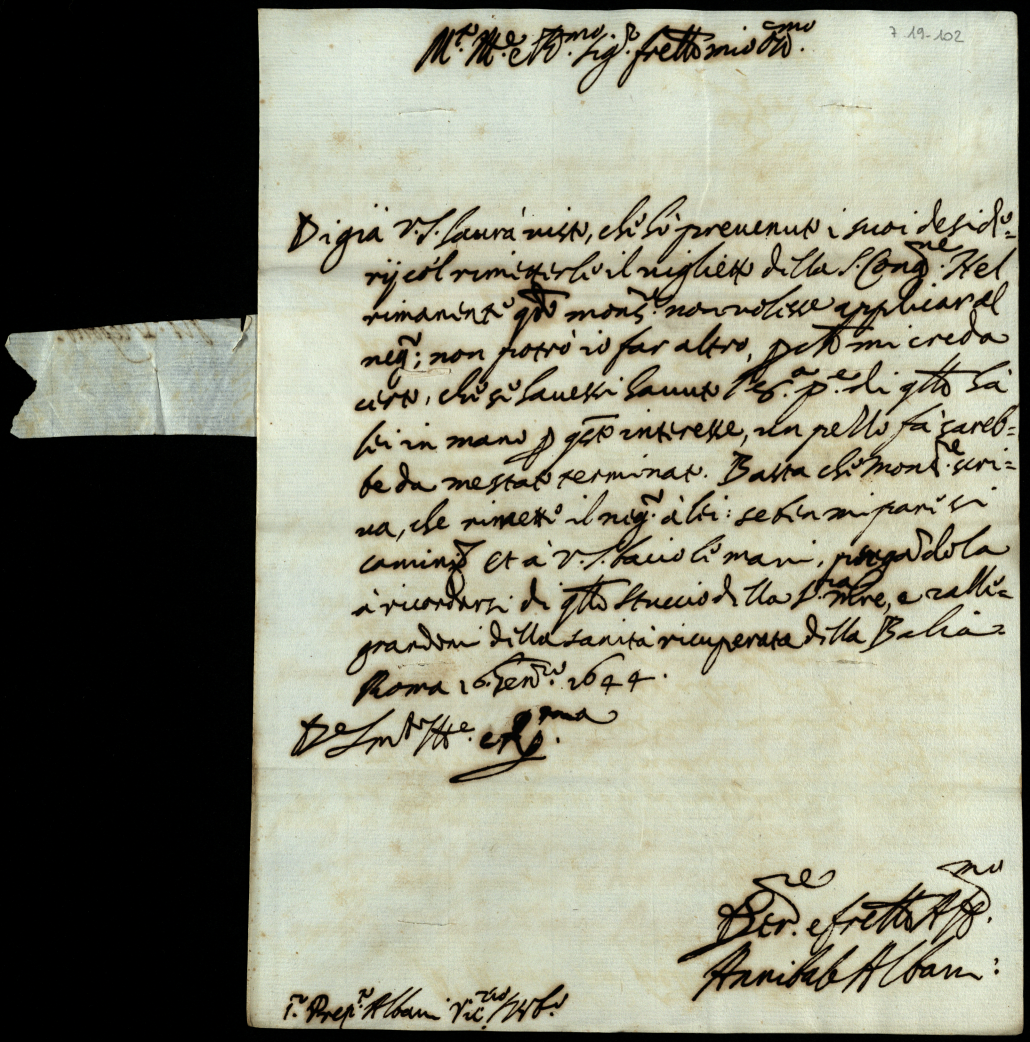 7-19-102
M.to Ill.e e R.mo Sig.r frello mio Oss.mo
Di già V.S. haurà visto, che hò preuenuto i suoi deside=
rij col rimetterle il viglietto della S. Cong.ne. Nel
rimanente q.do mons.r non volesse applicar al
neg.o; non potrò io far altro, però mi creda
certo, che se hauessi hauuto la p.e di q.llo hà
lei in mano p q.sto interesse, un pezzo fà sareb=
be da me stato terminato. Basta che Mons.re scri=
ua, che rimette il neg.o à lei: se ben mi pare si
camini et à V.S. bacio le mani, pregandola
à ricordarsi di q.llo stuccio della S.ra Mre, e ralle=
grandomi della sanità ricuperata della Balia
Roma 16 Gen.ro 1644.
De S M.to Ill.e e R.ma
Ser.re e frello Aff.mo
Annibale Albani
S.r Prep.to Albani Vic.rio Urb.o